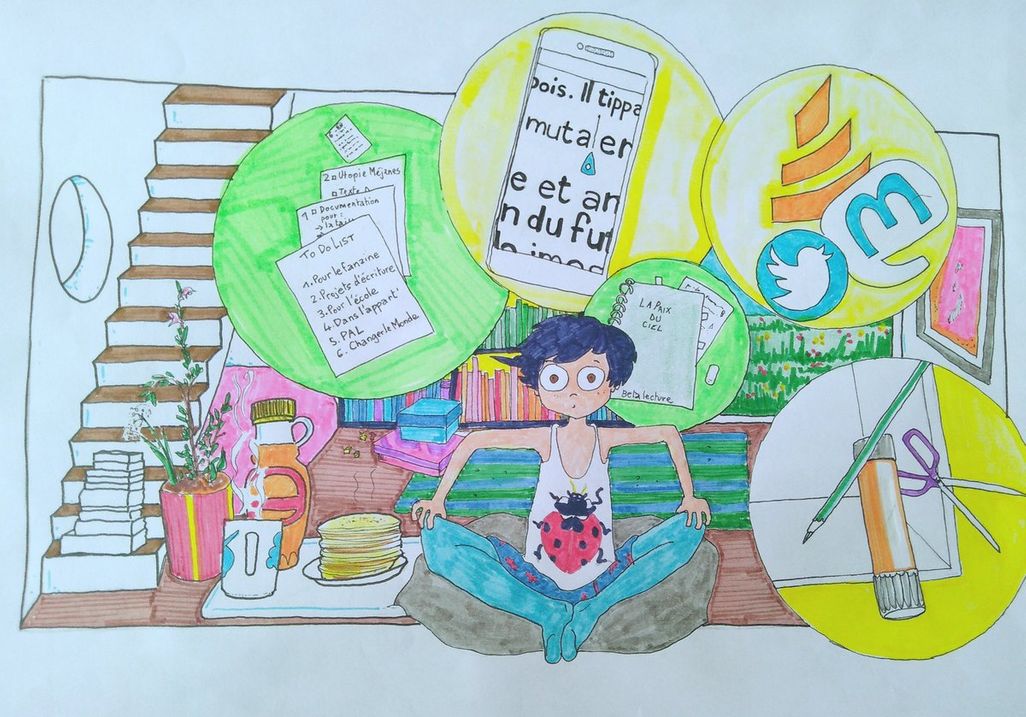 2 Utopie Méjenes
Texte
1 Documentation
pour :
TO DO LIST
1. Pour le fanzine
2. Projets d'écriture
3. Pour l'école
4. Dans l'appart'
5. PAL
6. Changer le Monde
pois. Il tippa
muta en
e et an
n du fut
LA PAIX
DU
CIEL
Beta lecture
m